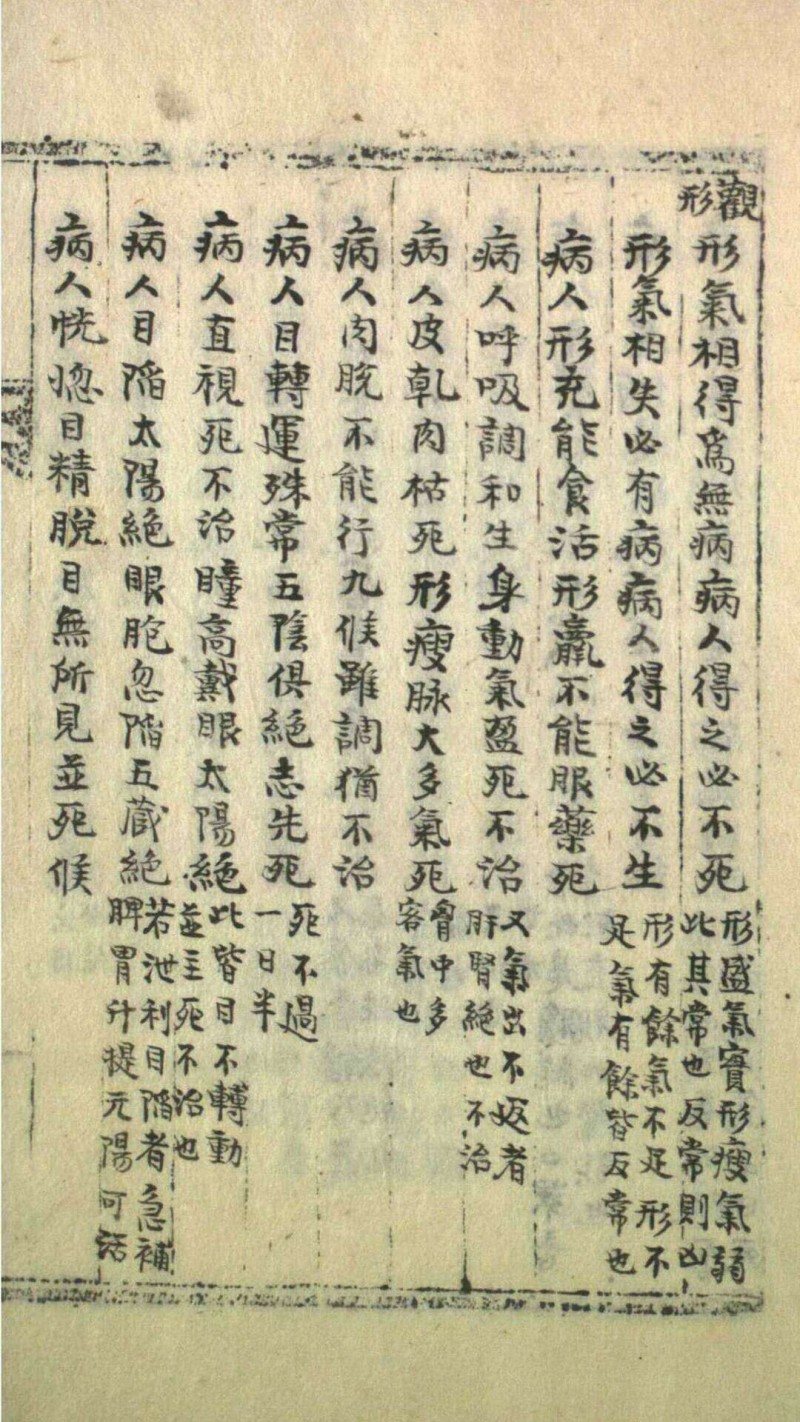 觀形
形氣相得爲無病病人得之必不死
形盛氣實形瘦氣弱
此其常也反常則凶
形氣相失必有病病人得之必不生
形有餘氣不足形不
足氣有餘皆反常也
病人形充能食活形羸不能服藥死
病人呼吸調和生身動氣盈死不治
又氣出不返者
肝腎絶也不治
病人皮乹肉枯死形瘦脉大多氣死
胷中多
客氣也
病人肉脫不能行九候雖調猶不治
病人目轉運殊常五陰俱絶志先死
死不過
一日半
病人直視死不治瞳高戴眼太陽絶
此皆目不轉動
並主死不治也
病人目陷太陽絶眼胞忽陷五藏絶
若泄利目陷者急補
脾胃升提元陽可活
病人恍惚目精脫目無所見並死候